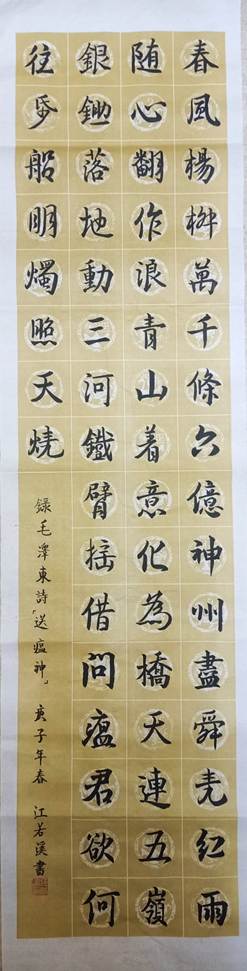 春風楊柳萬千條六億神州盡舜尧紅雨
随心翻作浪青山着意化為橋天連五嶺
銀鋤落地動三河鐵臂摇借問瘟君欲何
往帋船明燭照天燒
録毛澤東詩「送瘟神」 庚子年春 江若溪書